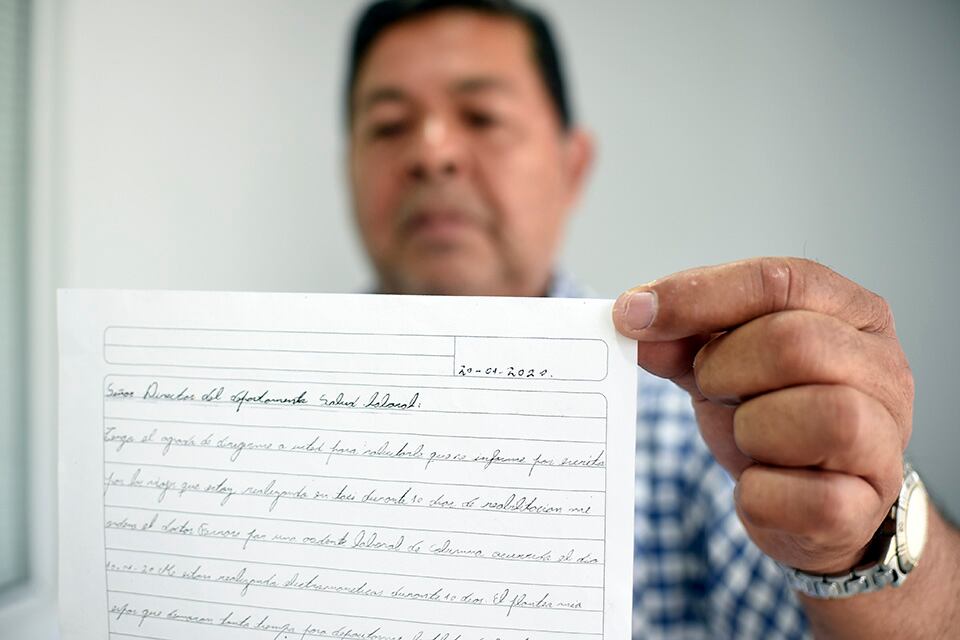 20-01-2020.
Señor Director del departamento Salud laboral:
Tengo el agrado de dirigirme a usted para solicitarle que me informe por escrito
por los viajes que estoy realizando en taxi durante 10 dias de reabilitacion mi
ordena el doctor por una acidente laboral de columna ocurrida el dia
20 Me estan realizando electromaneticos durante 10 dias. El planteo mio
es por que demoran tanto tiempo para